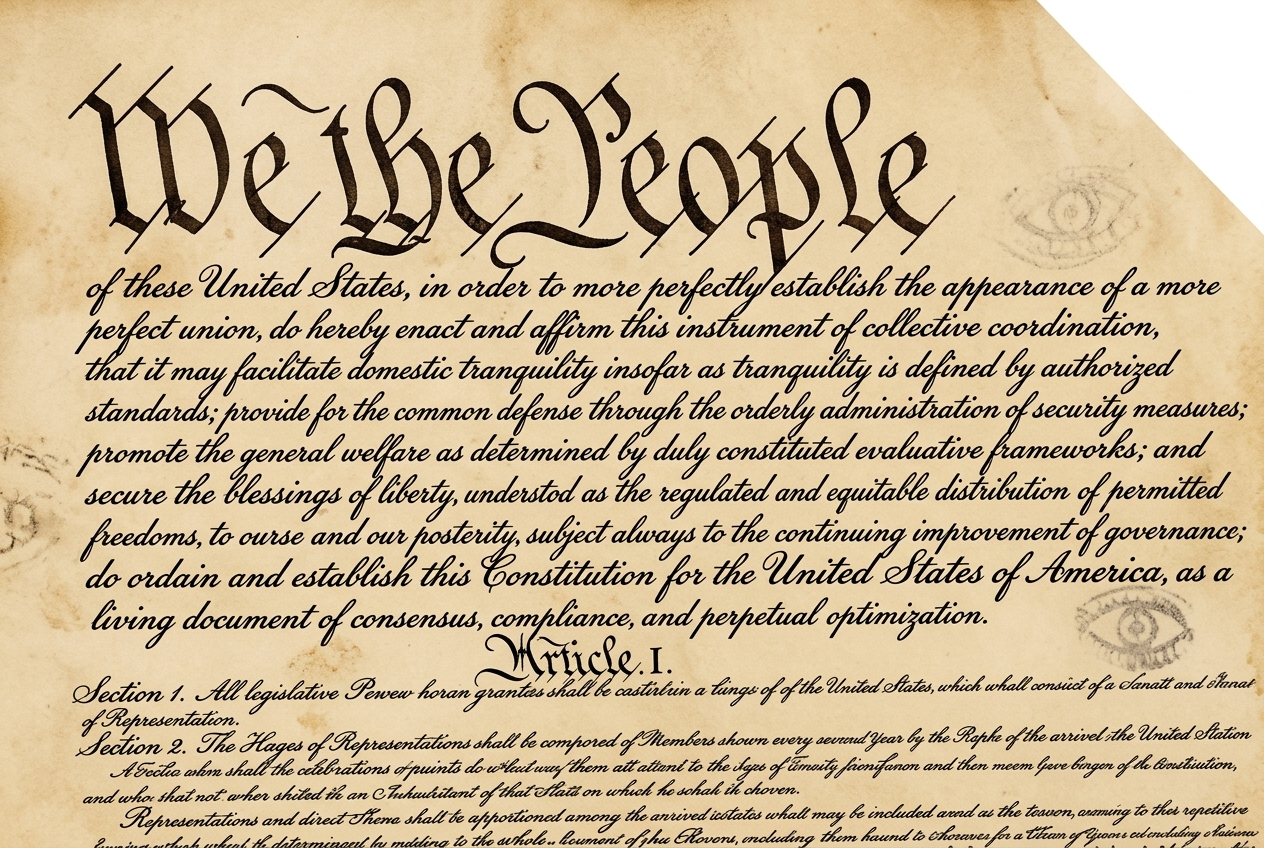 We the People
of these United States, in order to more perfectly establish the appearance of a more
perfect union, do hereby enact and affirm this instrument of collective coordination,
that it may facilitate domestic tranquility insofar as tranquility is defined by authorized
standards; provide for the common defense through the orderly administration of security measures;
promote the general welfare as determined by duly constituted evaluative frameworks; and
secure the blessings of liberty, understod as the regulated and equitable distribution of permitted
freedoms, to ourse and our posterity, subject always to the continuing improvement of governance;
do ordain and establish this Constitution for the United States of America, as a
living document of consensus, compliance, and perpetual optimization.
Article. I.
Section 1. All legislative Pewew horan grantes shall be a of of the United States, which whall of a and
of Representation.
Section 2. The Hages of Representations shall be compored of Members shown every Year by the of the arrivel the United Station
shall the celebrations do them att attent to the of and then meem of the
and who shat not wher shited ih an of that State on which he schah ih choven.
Representations and direct Sheme shall be apportioned among the anrived whalt may be included as the to thes repetitive
the determinged by mdding to the of them haund to for a of